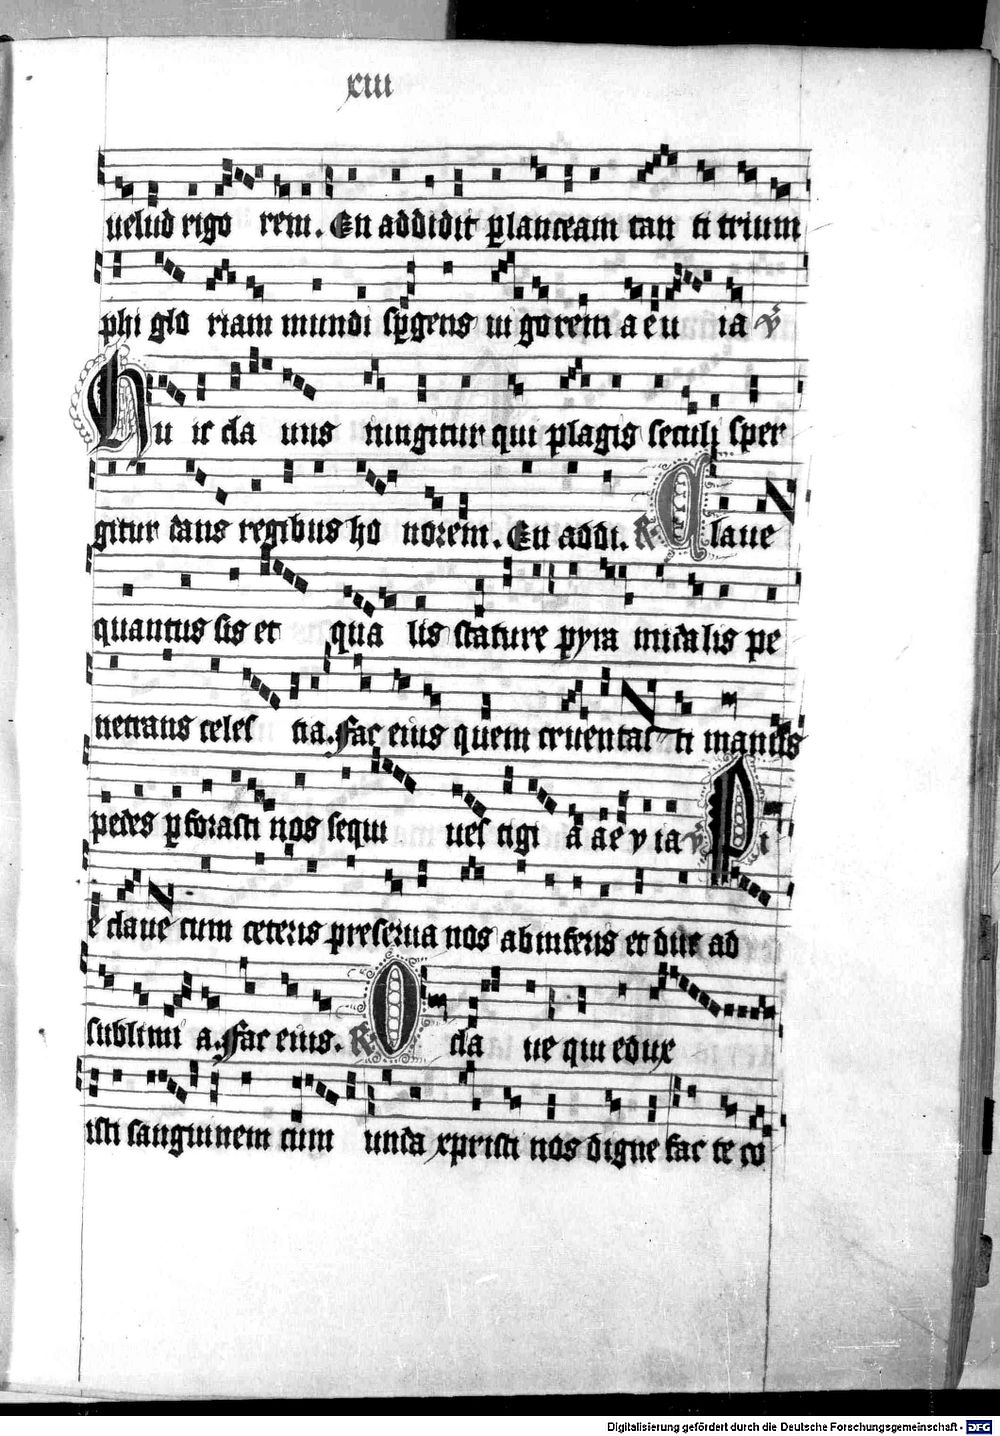 xiii
uelud rigo rem. En addidit planceam tan ti trium
phi glo riam mundi spgens in gorem a e u ia
Hu ic da uus iungitur qui plagis seculi sper
gitur dans regibus ho norem. En addi. Claue
quantus sis et qua lis stature pyra midalis pe
netrans celes tia. Fac eius quem cruentas ti manus
pedes pforasti nos sequi ues tigi a a e v ia Pi
e claue cum ceteris preserua nos ab inferis et duc ad
sublimi a. Fac eius. O cla ue qui edux
isti sanguinem cum unda xpristi nos digne fac te co
Digitalisierung gefördert durch die Deutsche Forschungsgemeinschaft - DFG